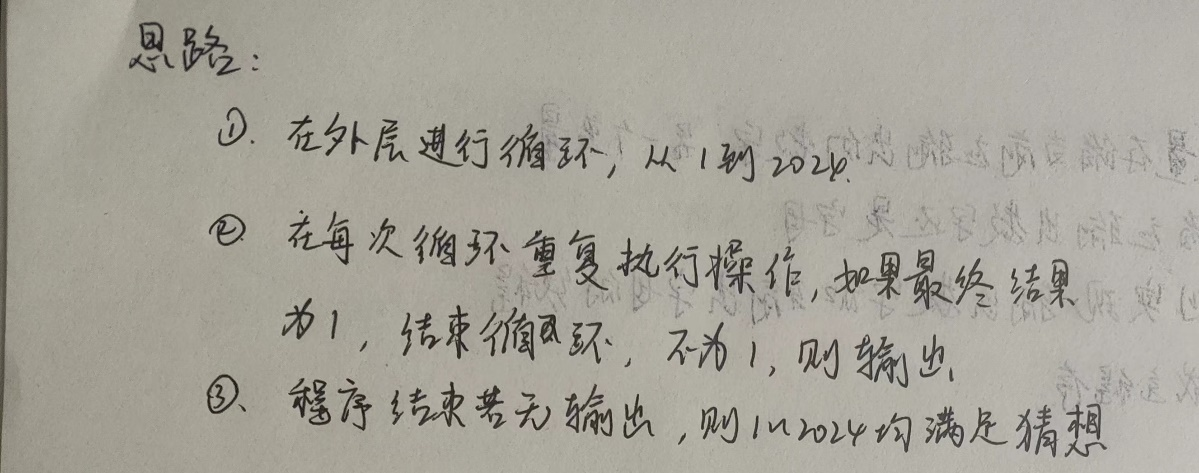 思路：
①. 在外层进行循环，从1到2024.
② 在每次循环重复执行操作，如果最终结果
为1，结束循环，不为1，则输出.
③、程序结束若无输出，则1~2024均满足猜想